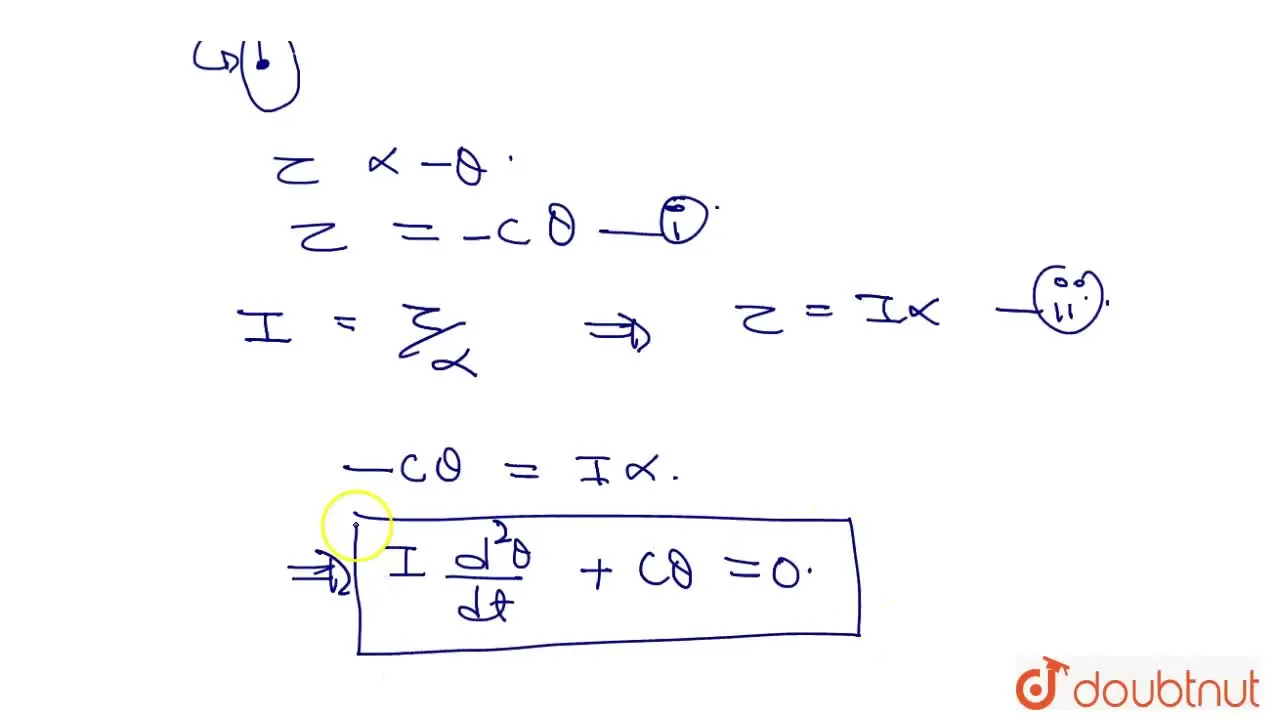 τ ∝ -θ.
τ = -Cθ — (i).
I = τ/α ⇒ τ = Iα — (ii).
-Cθ = Iα.
⇒ I d²θ/dt + Cθ = 0.
doubtnut